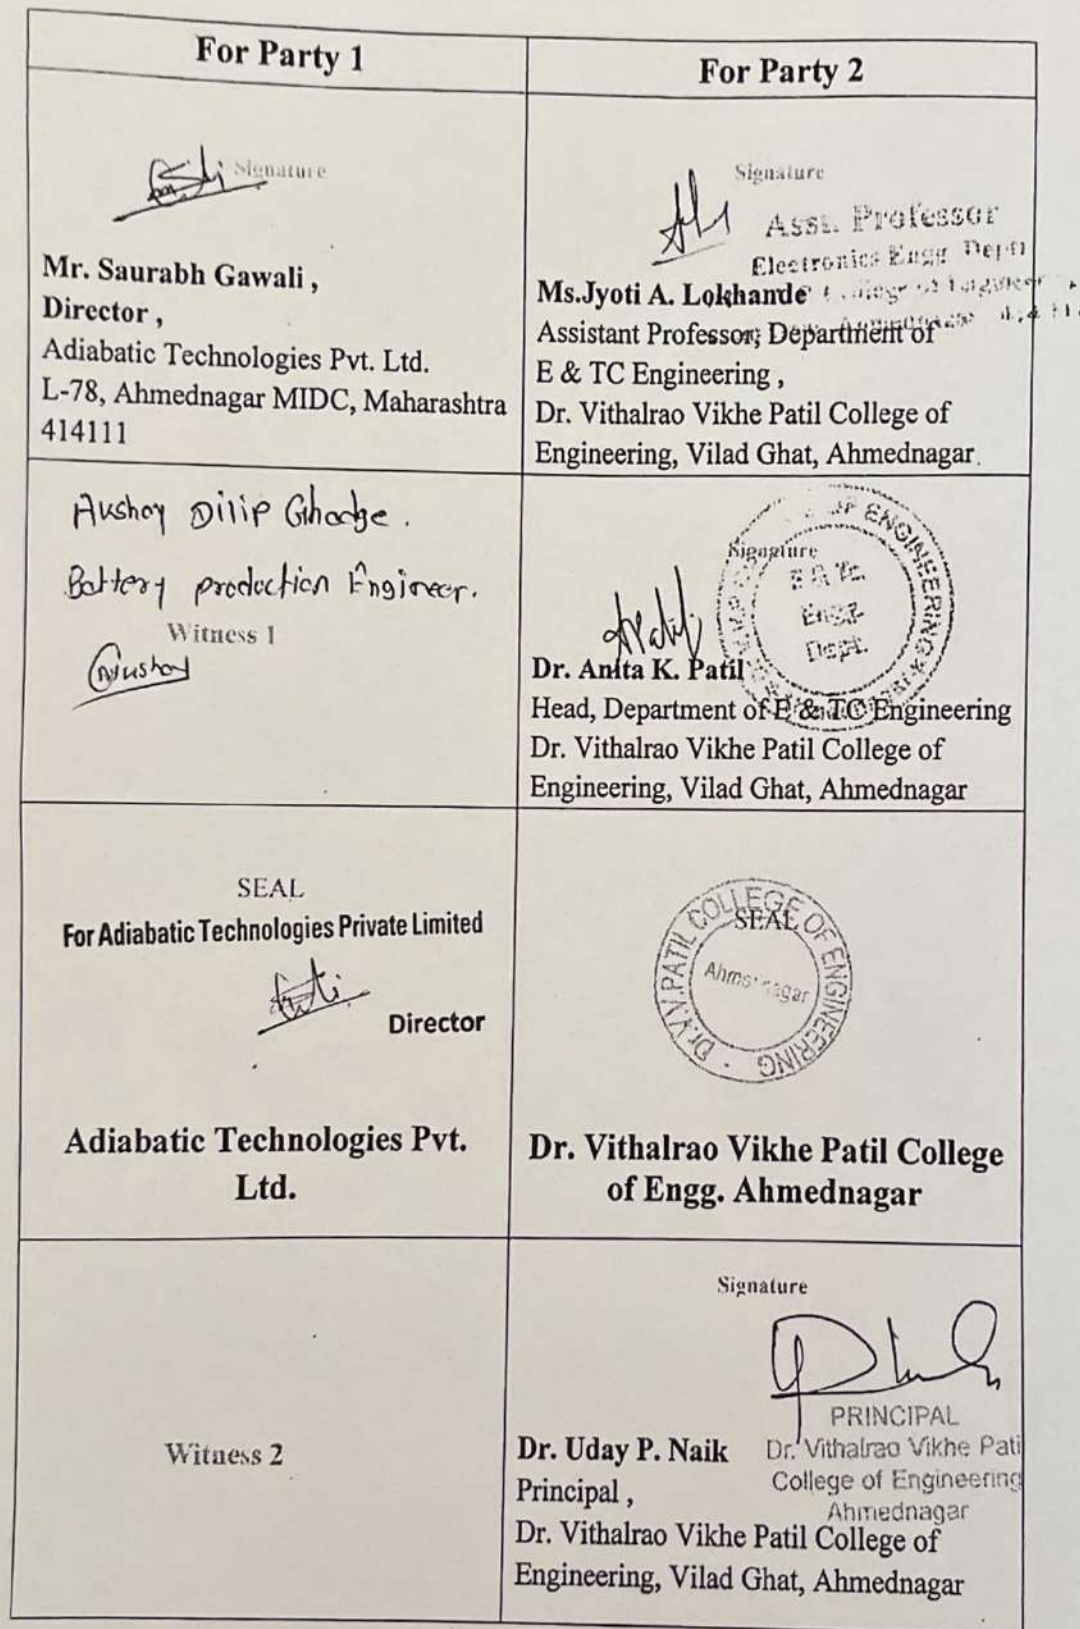 For Party 1
For Party 2
Signature
Mr. Saurabh Gawali ,
Director ,
Adiabatic Technologies Pvt. Ltd.
L-78, Ahmednagar MIDC, Maharashtra
414111
Signature
Asst. Professor
Electronics Engg. Deptt
Ms.Jyoti A. Lokhande
Assistant Professor, Department of
E & TC Engineering ,
Dr. Vithalrao Vikhe Patil College of
Engineering, Vilad Ghat, Ahmednagar.
Akshay Dilip Ghadge.
Battery production Engineer.
Witness 1
Signature
OF ENGINEERING
E & TC
Engg.
Dept.
Dr. Anita K. Patil
Head, Department of E & TC Engineering
Dr. Vithalrao Vikhe Patil College of
Engineering, Vilad Ghat, Ahmednagar
SEAL
For Adiabatic Technologies Private Limited
Director
Adiabatic Technologies Pvt.
Ltd.
SEAL
Dr.V.V.PATIL COLLEGE OF ENGINEERING
Ahmednagar
Dr. Vithalrao Vikhe Patil College
of Engg. Ahmednagar
Witness 2
Signature
PRINCIPAL
Dr. Vithalrao Vikhe Pati
College of Engineering
Ahmednagar
Dr. Uday P. Naik
Principal ,
Dr. Vithalrao Vikhe Patil College of
Engineering, Vilad Ghat, Ahmednagar